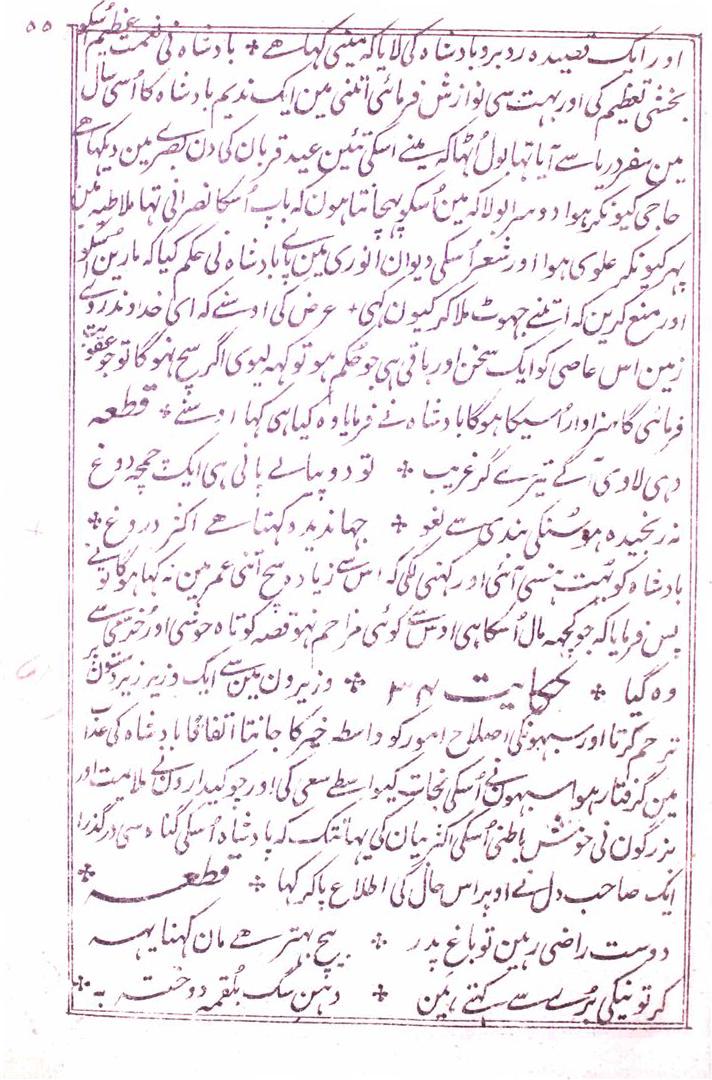 ۵۵
اور ایک قصیدہ روبرو بادشاہ کی لایا کہ مینی کہا ہے ❖ بادشاہ نی نعمت عظیم اُسکو
بخشی تعظیم کی اور بہت سی نوازش فرمائی اتنی مین ایک ندیم بادشاہ کا اُسی سال
مین سفر دریا سے آیا تہا بول اُٹہا کہ مینے اسکی تئین عید قربان کی دن بصرے مین دیکہا ہے
حاجی کیونکر ہوا دوسرا بولا کہ مین اُسکو پہچانتا ہون کہ باپ اُسکا نصرانی تہا ملاطیہ مین
پہر کیونکر علوی ہوا اور شعر اُسکی دیوان انوری مین پاے بادشاہ نی حکم کیا کہ مارین اُسکو
اور منع کرین کہ اتنے جہوٹ ملا کر کیون کہی ❖ عرض کی اوسنے کہ ای خداوند روے
زمین اس عاصی کو ایک سخن اور باقی ہی جو حکم ہو تو کہہ لیوی اگر سچ نہو گا تو جو عقوبت
فرمائی گا سزاوار اُسیکا ہوگا بادشاہ نے فرمایا وہ کیا ہی کہا اوسنے ❖ قطعہ
دہی لاوی آگے تیرے گر غریب ❖ تو دو پیالے پانی ہی ایک چمچہ دوغ
نہ رنجیدہ ہو سُنکی بندی سے لغو ❖ جہاندیدہ کہتا ہے اکثر دروغ ❖
بادشاہ کو بُہت ہنسی آئی اور کہنی لگی کہ اس سے زیادہ سچ اتنی عمر مین نہ کہا ہوگا تونے
پس فرمایا کہ جو کچہہ مال اُسکا ہی اوس سے کوئی مزاحم نہو قصہ کوتاہ خوشی اور خُرّمی سے
وہ گیا ❖ حکایت ۳۴ ❖ وزیرون مین سے ایک وزیر زیردستون پر
ترحم کرتا اور سبہونکی اصلاح امور کو واسطہ خیر کا جانتا اتفاقا بادشاہ کی عذاب
مین گرفتار ہوا سبہون نے اُسکی نجات کیواسطے سعی کی اور چوکیدارون نے ملائمیت اور
بزرگون نی خوش باطنی اُسکی اکثر بیان کی یہانتک کہ پادشاہ اُسکی گناہ سی درگذرا
ایک صاحب دل نے اوپر اس حال کی اطلاع پا کر کہا ❖ قطعہ ❖
دوست راضی رہین تو باغ پدر ❖ بیچ بہتر ہے مان کہنا یہہ
کر تو نیکی بُرے سے کہتے ہین ❖ دہن سگ بلقمہ دوختہ بہ ❖